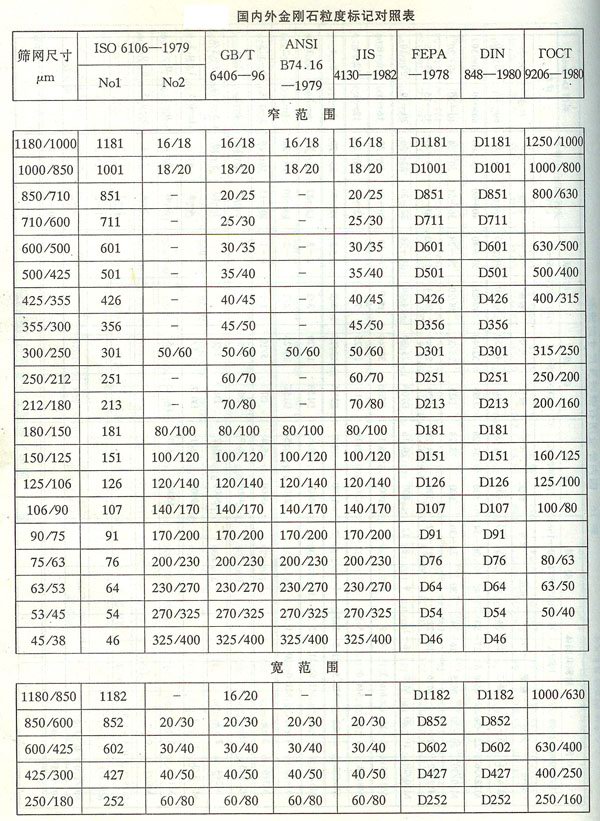 国内外金刚石粒度标记对照表
筛网尺寸 μm ISO 6106—1979 No1 No2 GB/T 6406—96 ANSI B74.16 —1979 JIS 4130—1982 FEPA —1978 DIN 848—1980 ГОСТ 9206—1980
窄范围
1180/1000 1181 16/18 16/18 16/18 16/18 D1181 D1181 1250/1000
1000/850 1001 18/20 18/20 18/20 18/20 D1001 D1001 1000/800
850/710 851 – 20/25 – 20/25 D851 D851 800/630
710/600 711 – 25/30 – 25/30 D711 D711
600/500 601 – 30/35 – 30/35 D601 D601 630/500
500/425 501 – 35/40 – 35/40 D501 D501 500/400
425/355 426 – 40/45 – 40/45 D426 D426 400/315
355/300 356 – 45/50 – 45/50 D356 D356
300/250 301 50/60 50/60 50/60 50/60 D301 D301 315/250
250/212 251 – 60/70 – 60/70 D251 D251 250/200
212/180 213 – 70/80 – 70/80 D213 D213 200/160
180/150 181 80/100 80/100 80/100 80/100 D181 D181
150/125 151 100/120 100/120 100/120 100/120 D151 D151 160/125
125/106 126 120/140 120/140 120/140 120/140 D126 D126 125/100
106/90 107 140/170 140/170 140/170 140/170 D107 D107 100/80
90/75 91 170/200 170/200 170/200 170/200 D91 D91
75/63 76 200/230 200/230 200/230 200/230 D76 D76 80/63
63/53 64 230/270 230/270 230/270 230/270 D64 D64 63/50
53/45 54 270/325 270/325 270/325 270/325 D54 D54 50/40
45/38 46 325/400 325/400 325/400 325/400 D46 D46
宽范围
1180/850 1182 – 16/20 – – D1182 D1182 1000/630
850/600 852 20/30 20/30 20/30 20/30 D852 D852
600/425 602 30/40 30/40 30/40 30/40 D602 D602 630/400
425/300 427 40/50 40/50 40/50 40/50 D427 D427 400/250
250/180 252 60/80 60/80 60/80 60/80 D252 D252 250/160